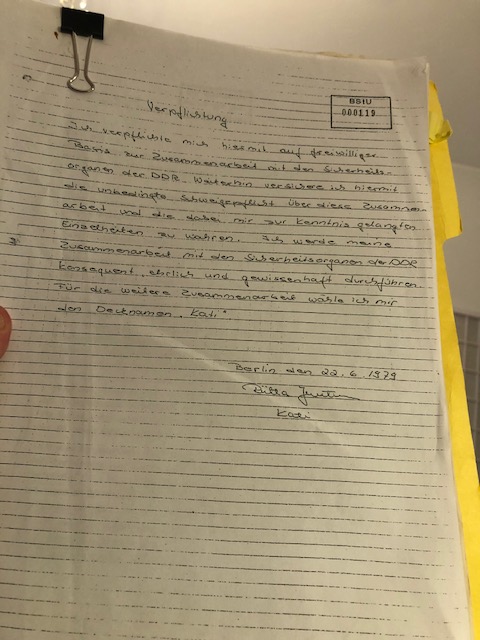 BStU
000119
Verpflichtung
Ich verpflichte mich hiermit auf freiwilliger
Basis zur Zusammenarbeit mit den Sicherheits-
organen der DDR. Weiterhin versichere ich hiermit
die unbedingte Schweigepflicht über diese Zusammen-
arbeit und die dabei mir zur Kenntnis gelangten
Einzelheiten zu wahren. Ich werde meine
Zusammenarbeit mit den Sicherheitsorganen der DDR
konsequent, ehrlich und gewissenhaft durchführen.
Für die weitere Zusammenarbeit wähle ich mir
den Decknamen „Kati"
Berlin den 22.6.1979
Kati